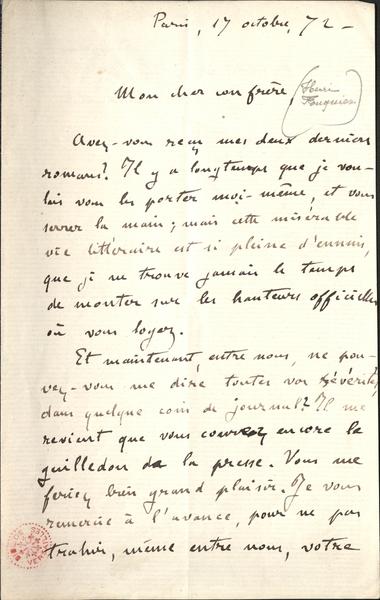 Paris, 17 octobre, 72 –
Mon cher confrère,
(Henri
Fouquier)
Avez-vous reçu mes deux derniers
romans? Il y a longtemps que je vou-
lais vous les porter moi-même, et vous
serrer la main; mais cette misérable
vie littéraire est si pleine d'ennuis,
que je ne trouve jamais le temps
de monter sur les hauteurs officielles
où vous logez.
Et maintenant, entre nous, ne pou-
vez-vous me dire toutes vos sévérités
dans quelque coin de journal? Il me
revient que vous courez encore le
guilledou de la presse. Vous me
feriez bien grand plaisir. Je vous
remercie à l'avance, pour ne pas
trahir, même entre nous, votre